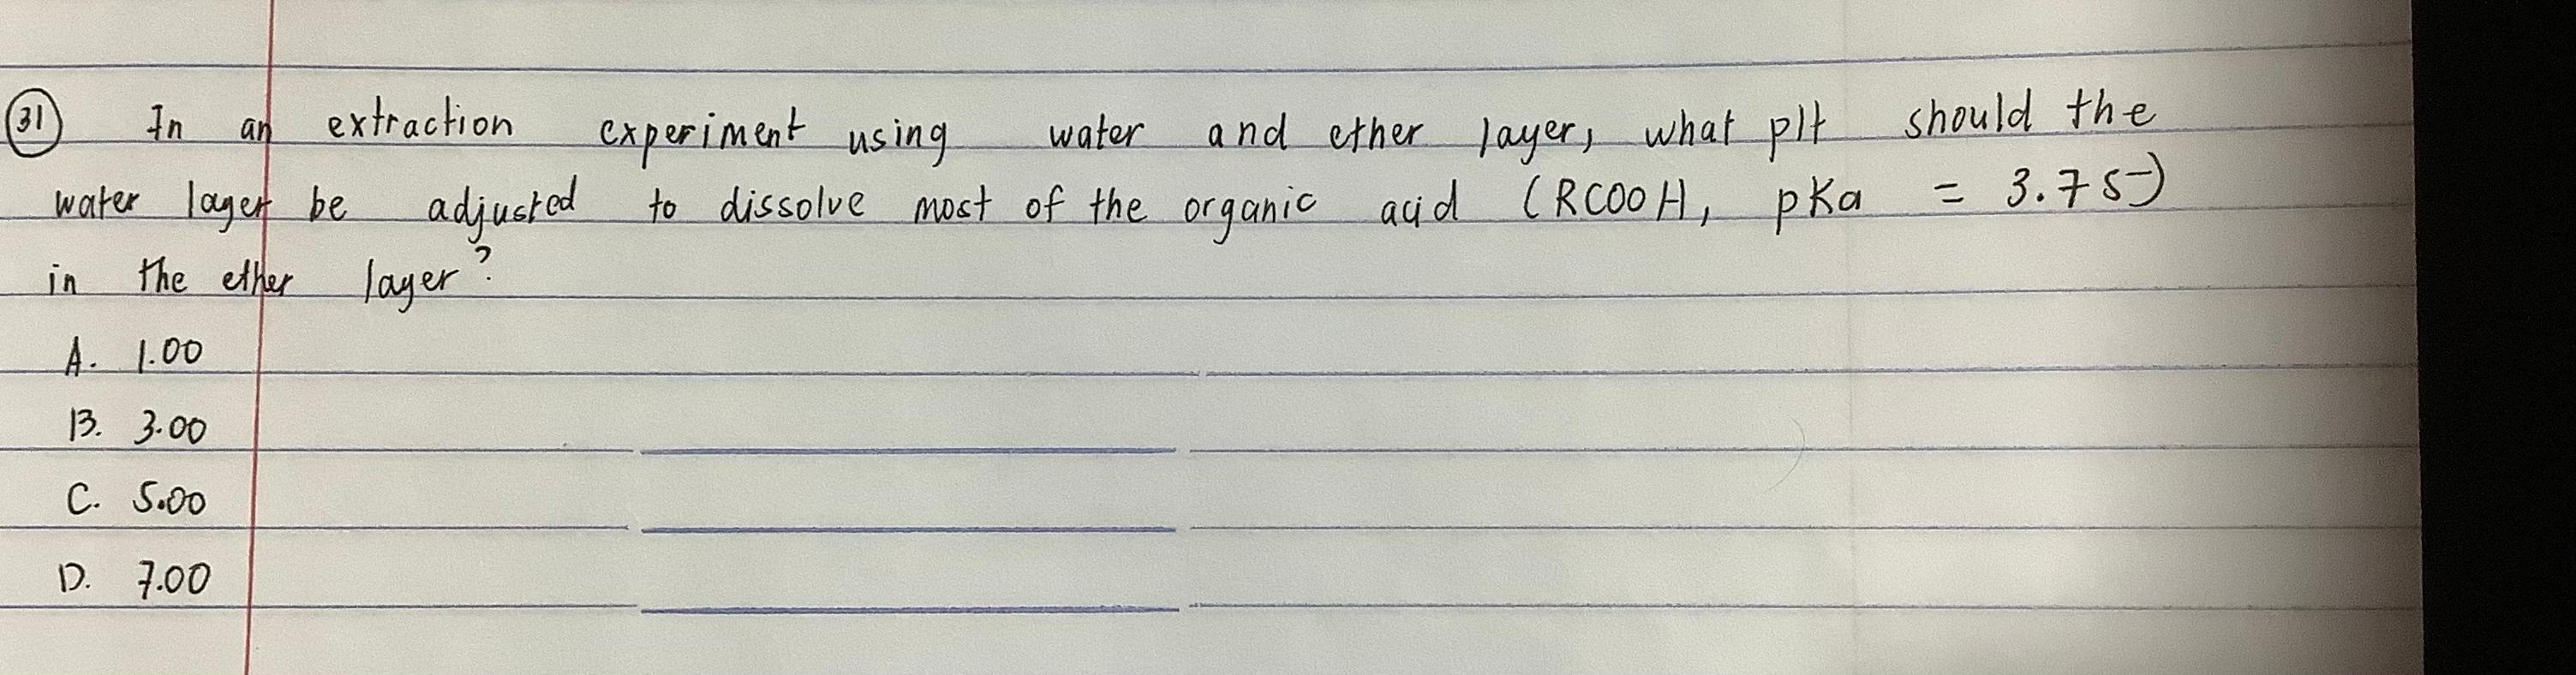 31 In an extraction experiment using water and ether layer, what pH should the
water layer be adjusted to dissolve most of the organic acid (RCOOH, pKa = 3.75)
in the ether layer?
A. 1.00
B. 3.00
C. 5.00
D. 7.00